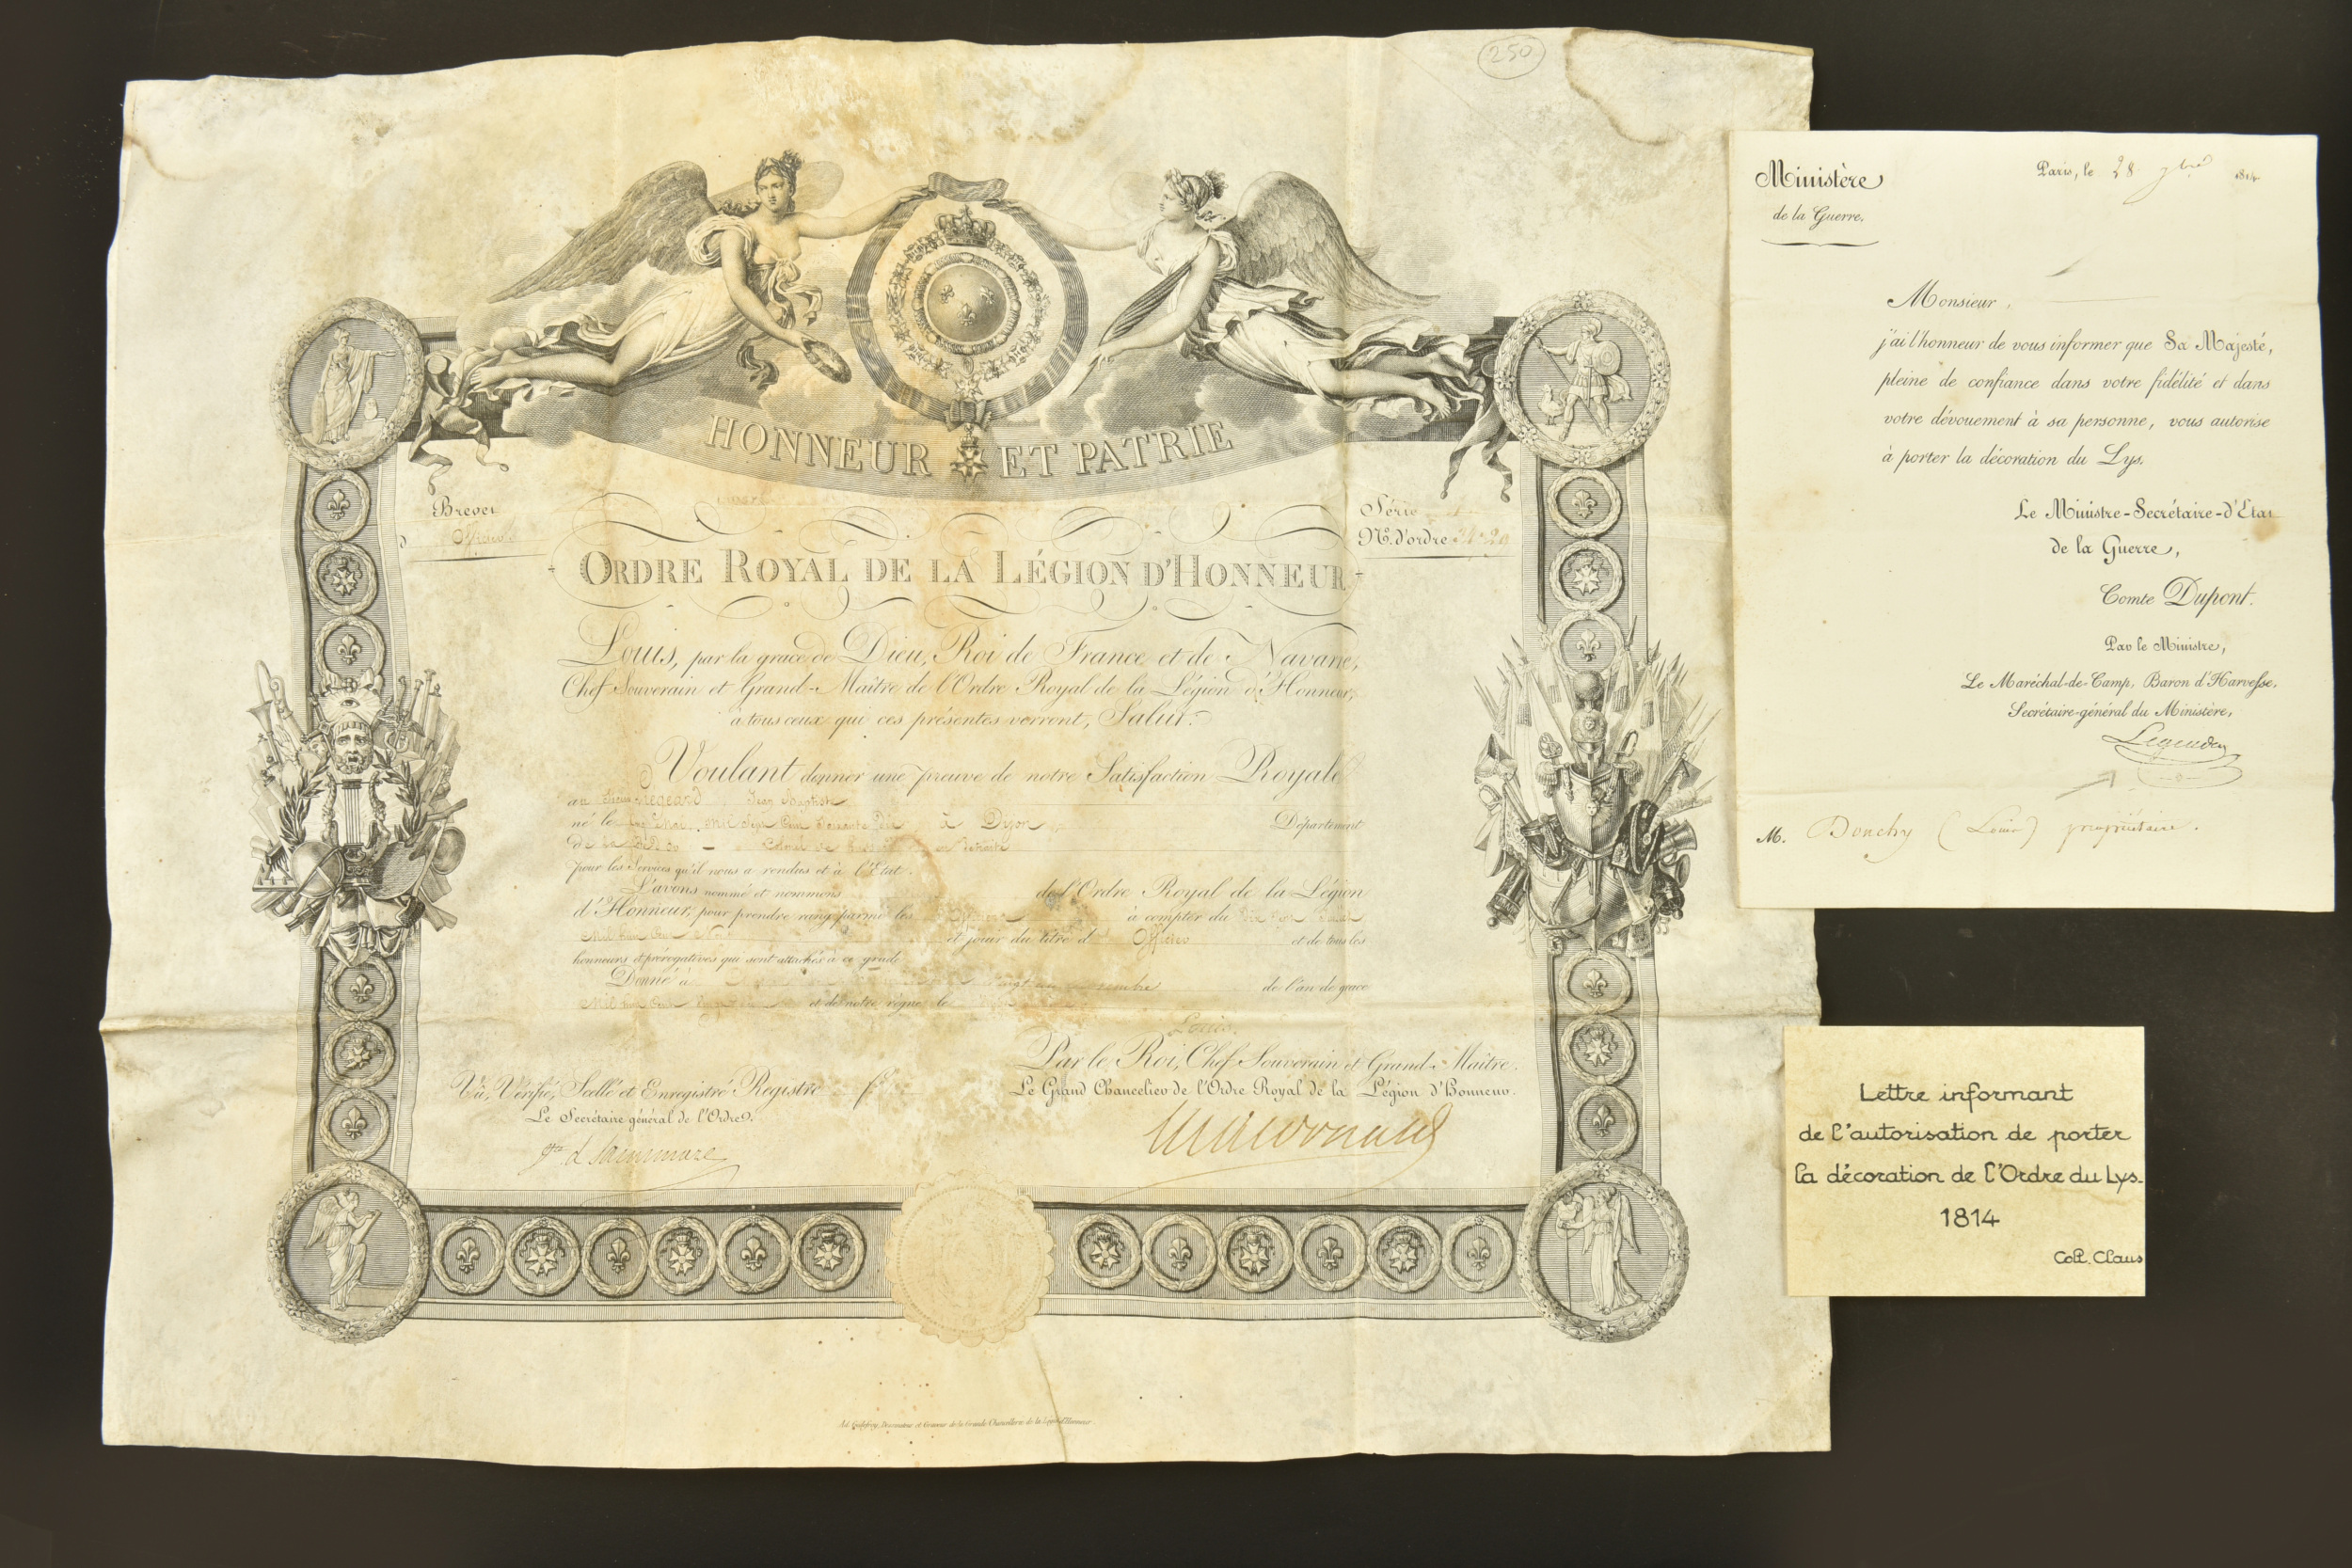 250
HONNEUR ET PATRIE
Brevet
d Officier
Série
N.º d'ordre
ORDRE ROYAL DE LA LÉGION D'HONNEUR
Louis, par la grace de Dieu, Roi de France et de Navarre,
Chef Souverain et Grand-Maître de l'Ordre Royal de la Légion d'Honneur,
à tous ceux qui ces présentes verront, Salut.
Voulant donner une preuve de notre Satisfaction Royale
au Sieur Jean Baptiste
né le Mil Sept Cent Soixante Dix à Dijon Département
de la Colonel de retraite
pour les Services qu'il nous a rendus et à l'Etat.
L'avons nommé et nommons de l'Ordre Royal de la Légion
d'Honneur, pour prendre rang parmi les Officiers à compter du
Mil huit Cent et jouir du titre d' Officier et de tous les
honneurs et prérogatives qui sont attachés à ce grade
Donné à de l'an de grace
Mil huit Cent et de notre règne le
Louis.
Par le Roi, Chef Souverain et Grand-Maître.
Vu, Vérifié, Scellé et Enregistré Registre f.º
Le Grand Chancelier de l'Ordre Royal de la Légion d'Honneur.
Le Secrétaire général de l'Ordre.
Macdonald
Ad. Godefroy, Dessinateur et Graveur de la Grande Chancellerie de la Légion d'Honneur
Ministère
de la Guerre.
Paris, le 28 9bre 1814
Monsieur,
j'ai l'honneur de vous informer que Sa Majesté,
pleine de confiance dans votre fidélité et dans
votre dévouement à sa personne, vous autorise
à porter la décoration du Lys.
Le Ministre-Secrétaire-d'Etat
de la Guerre,
Comte Dupont.
Par le Ministre,
Le Maréchal-de-Camp, Baron d'Harvesse,
Secrétaire-général du Ministère,
M. Donchy (Louis) propriétaire.
Lettre informant
de l'autorisation de porter
la décoration de l'Ordre du Lys.
1814
Coll. Claus